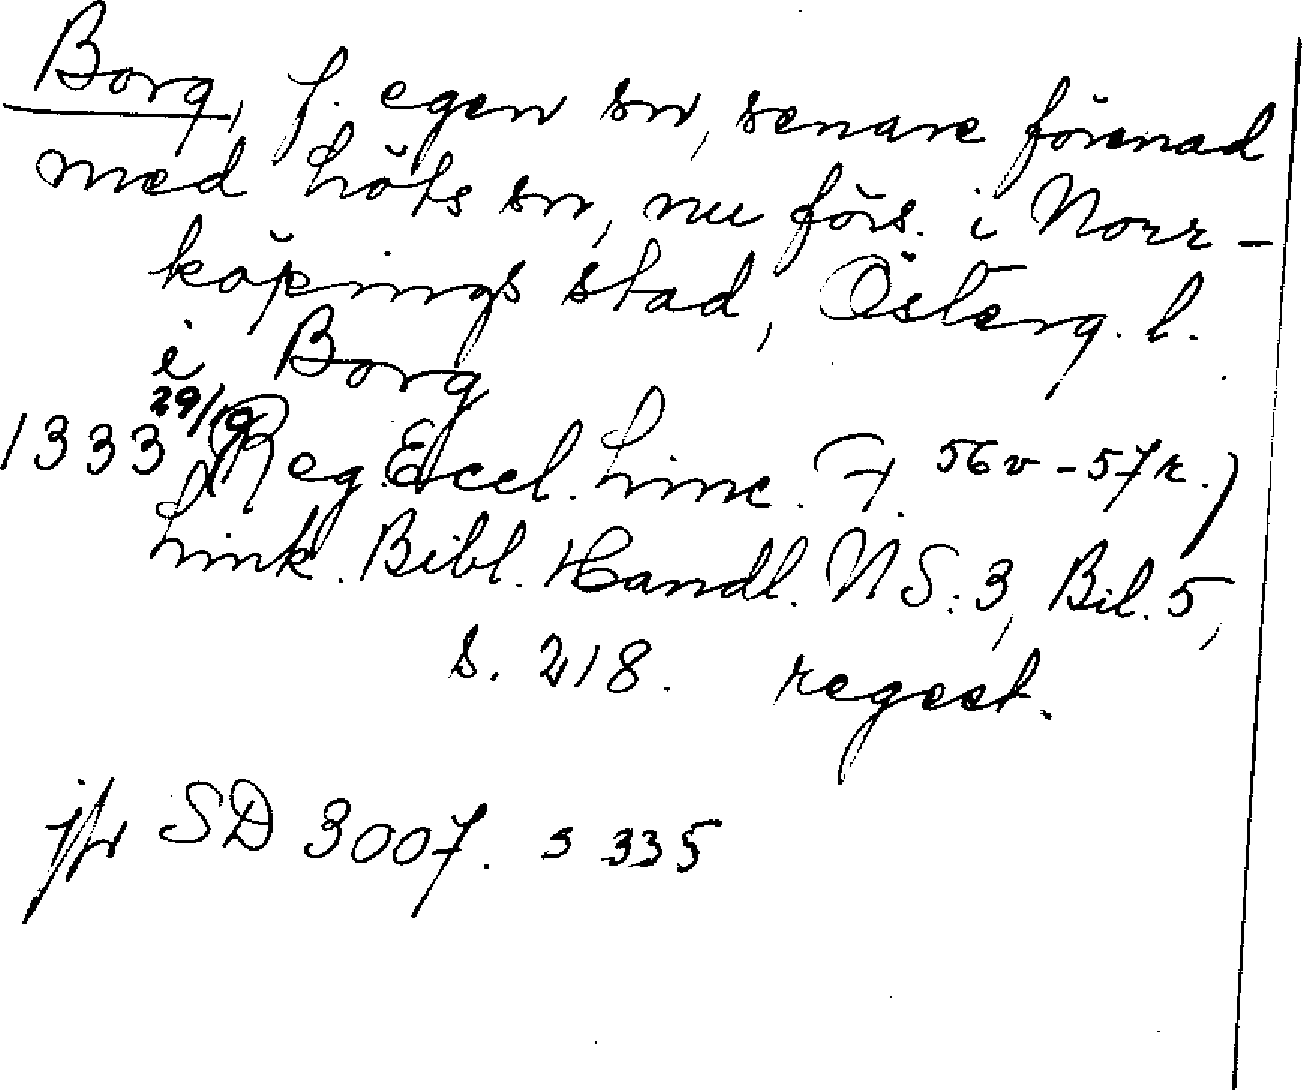 Borg, f. egen sn, senare förenad
med Löts sn, nu förs. i Norr-
köpings stad, Österg. l.
i Borg
1333 29/10 Reg. Eccl. Linc. F. 56v-57r.)
Link. Bibl. Handl. NS:3, Bil. 5,
s. 218. regest.
jfr SD 3007. s 335